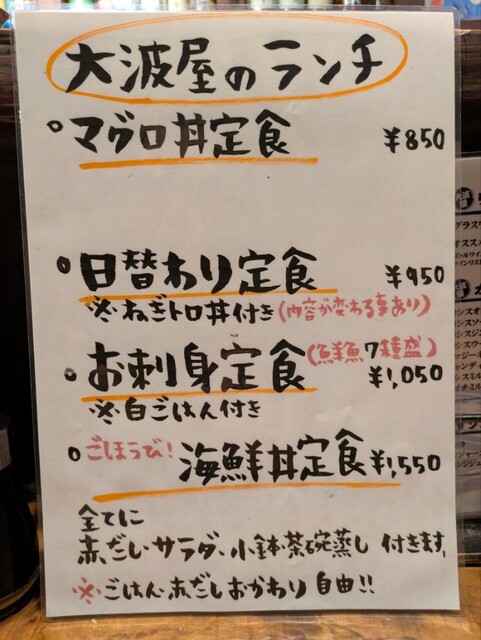 大波屋のランチ
マグロ丼定食 ¥850
日替わり定食 ¥950
※ねぎトロ丼付き(内容が変わる事あり)
お刺身定食(鮮魚7種盛) ¥1,050
※白ごはん付き
ごほうび! 海鮮丼定食 ¥1,550
全てに
赤だし、サラダ、小鉢、茶碗蒸し 付きます。
※ごはん・赤だしおかわり 自由!!
グラスワ
オススメ